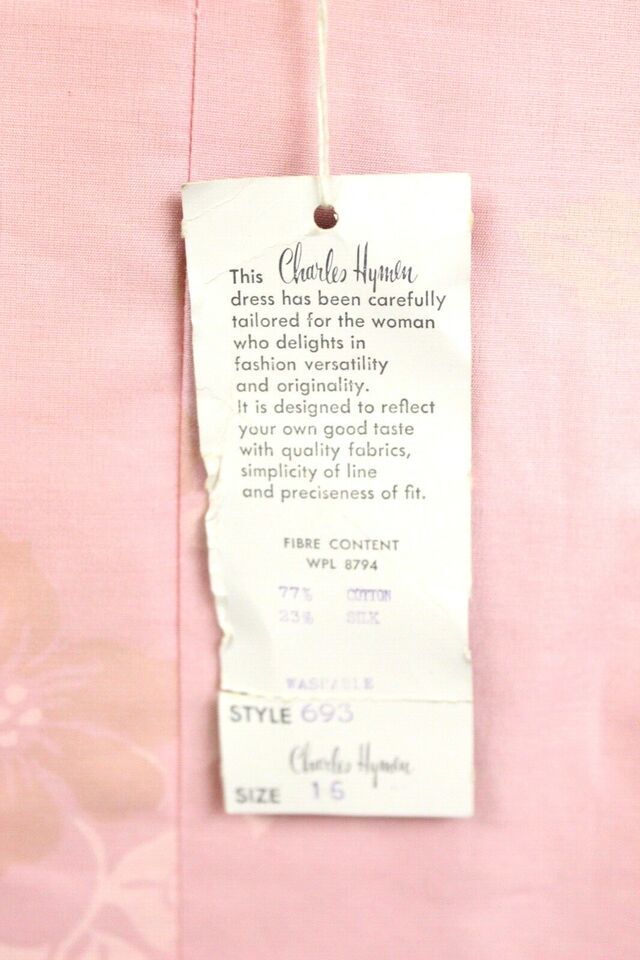 This Charles Hymen
dress has been carefully
tailored for the woman
who delights in
fashion versatility
and originality.
It is designed to reflect
your own good taste
with quality fabrics,
simplicity of line
and preciseness of fit.
FIBRE CONTENT
WPL 8794
77% COTTON
23% SILK
WASHABLE
STYLE 693
Charles Hymen
SIZE 16